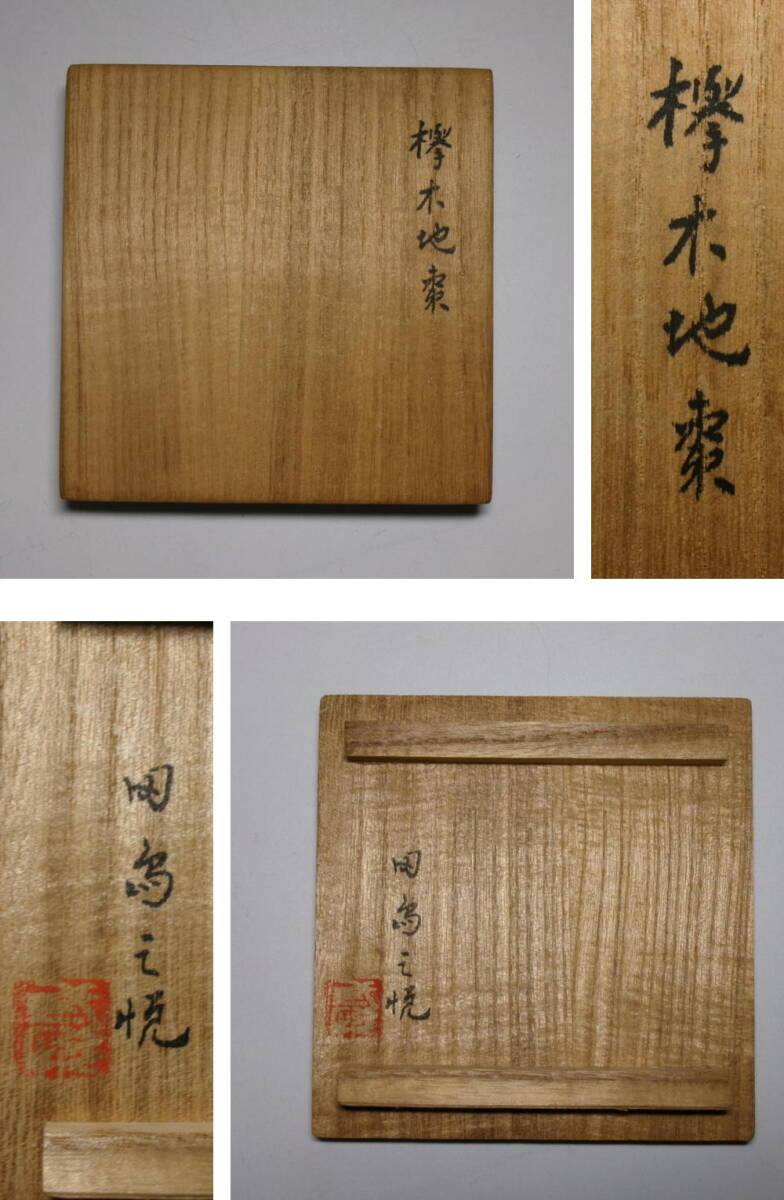 欅木地棗
欅木地棗
田島之悦
田島之悦